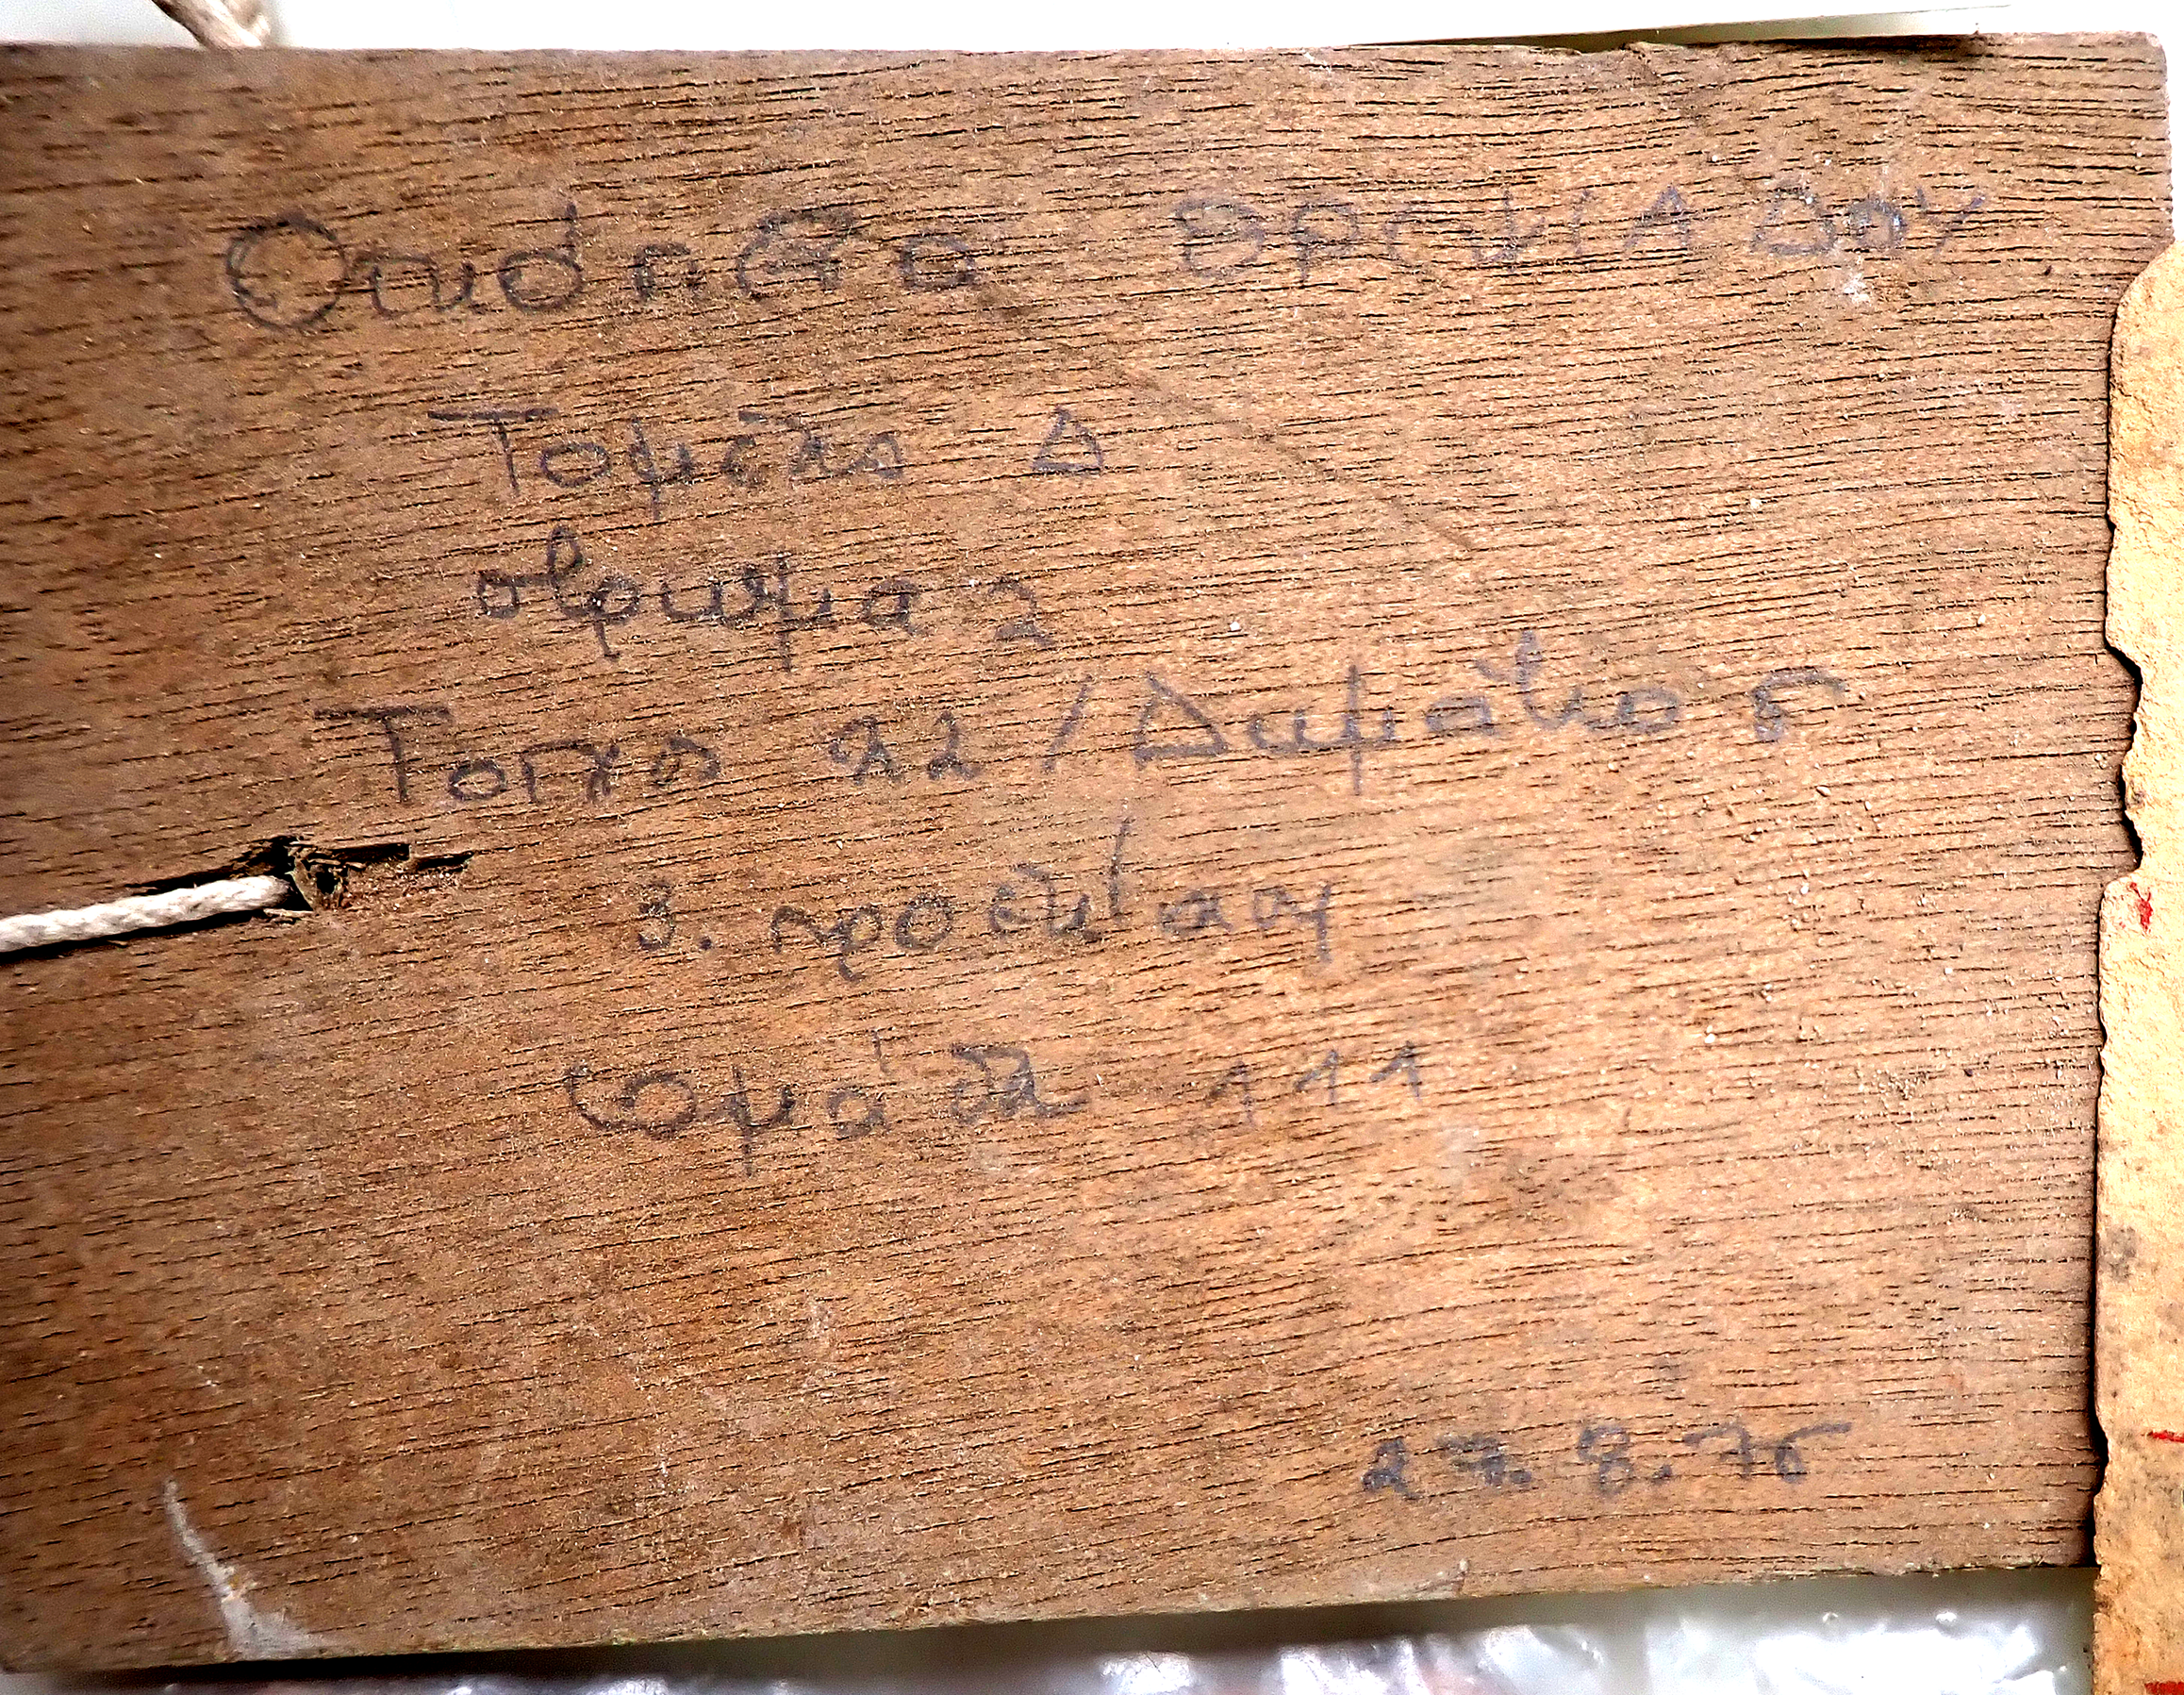 Οικόπεδο ΘΡΕΨΙΑΔΟΥ
Τομέας Δ
στρώμα 2
Τοίχος 22 / Δωμάτιο 5
3. προέκταση
ομάδα 111
27.8.75